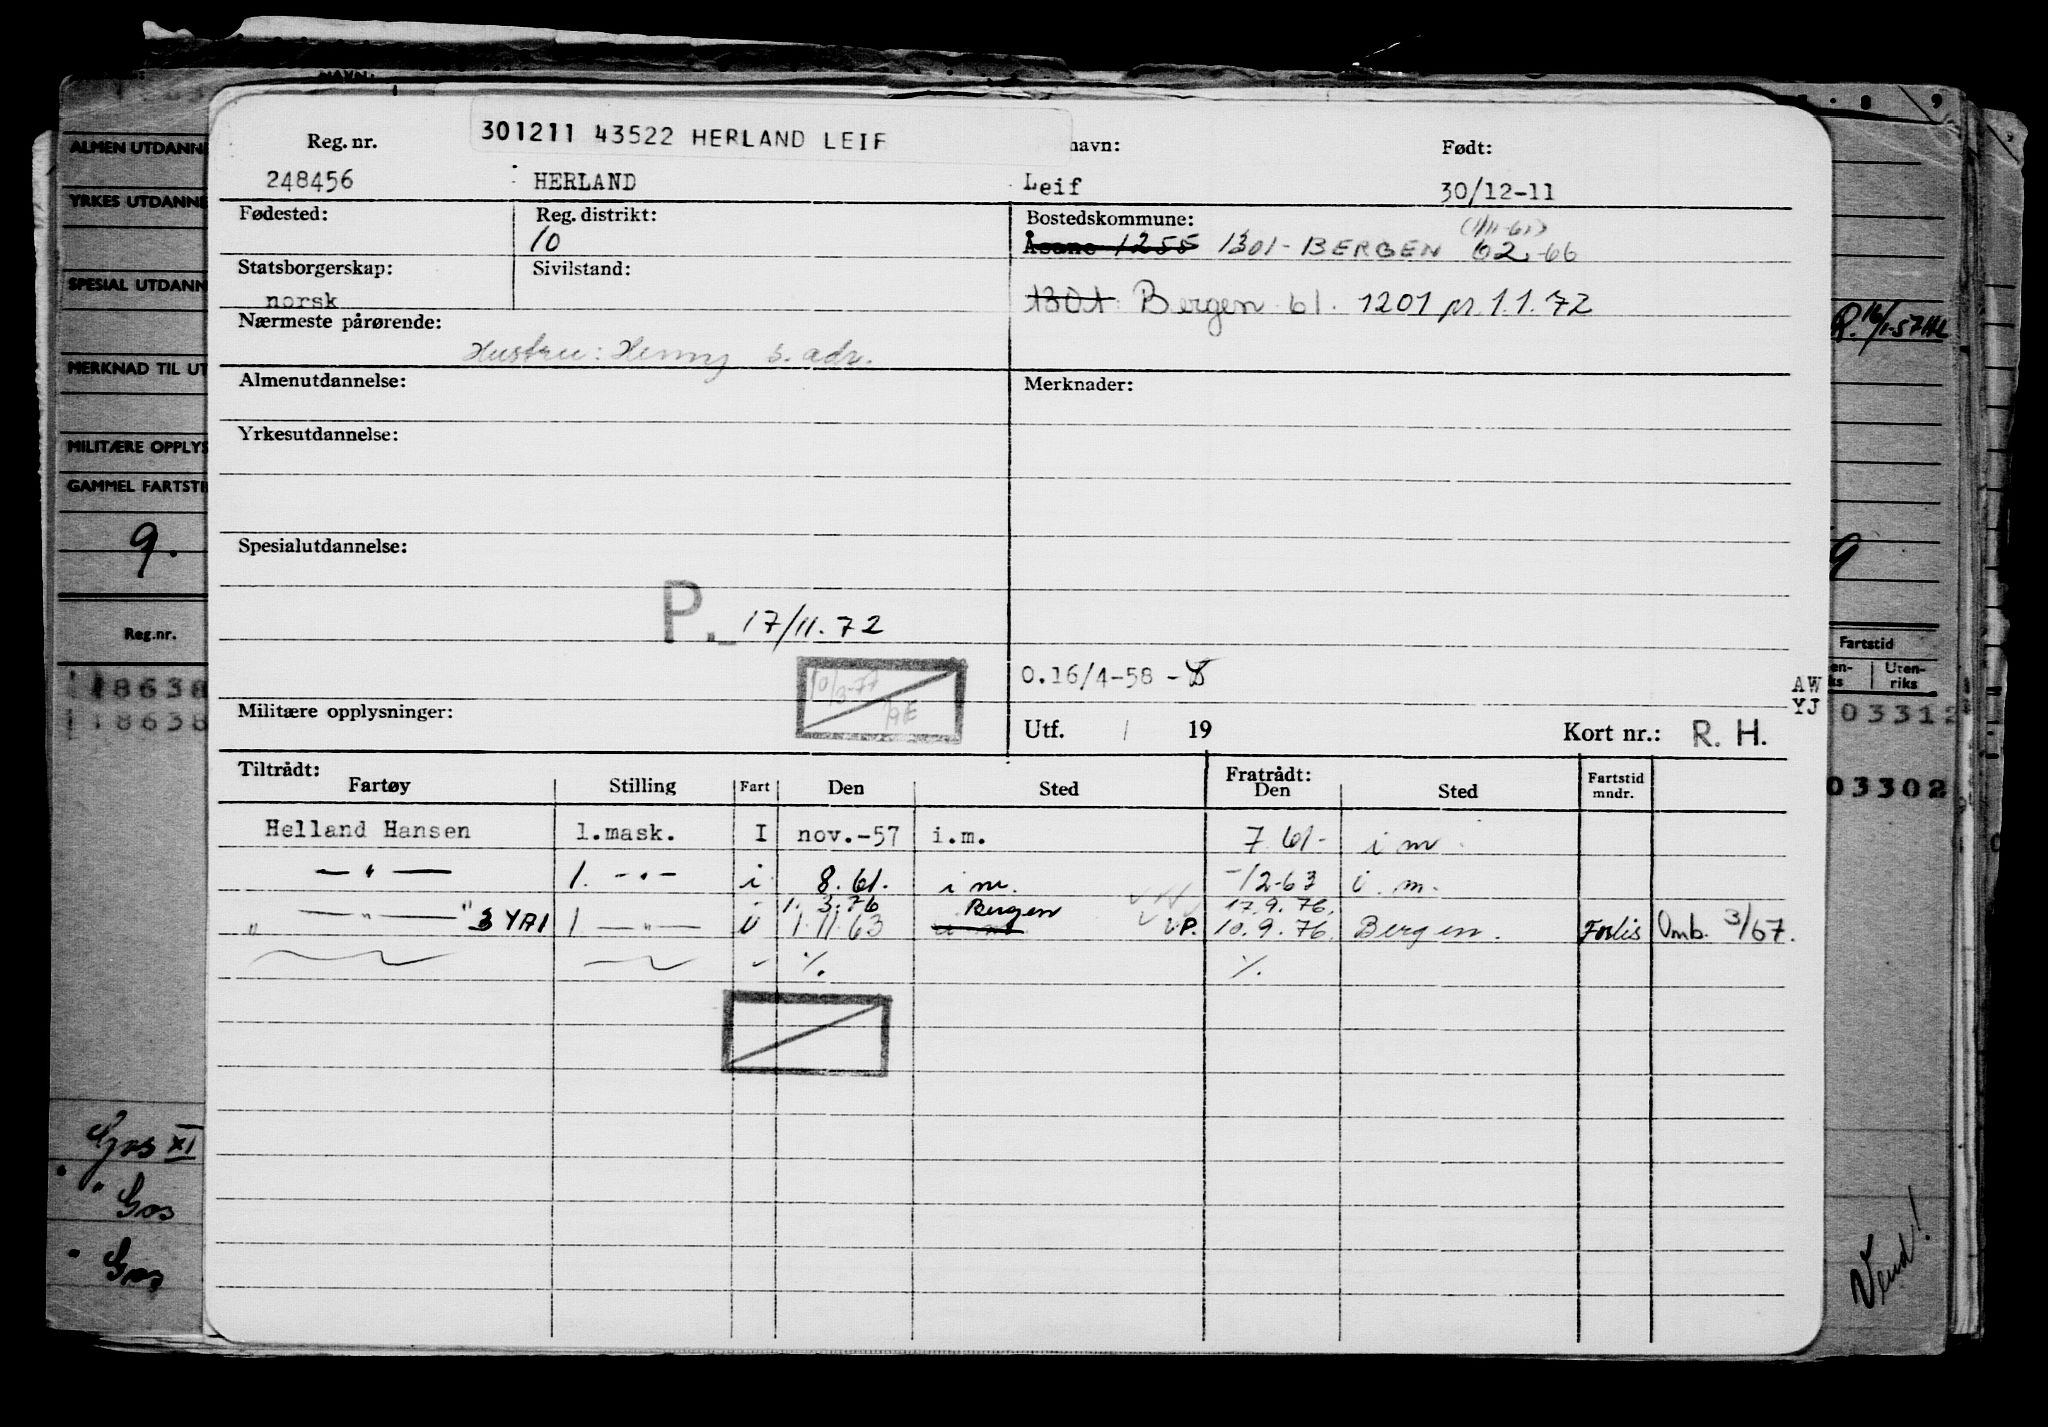 301211 43522 HERLAND LEIF
Reg. nr. navn: Født:
248456 HERLAND Leif 30/12-11
Fødested: Reg. distrikt: Bostedskommune: (1/11-61)
10 Åsane 1255 1301 - BERGEN 02-66
Statsborgerskap: Sivilstand:
norsk 1301 Bergen 61. 1201 pr. 1.1.72
Nærmeste pårørende:
Hustru: Henny s. adr.
Almenutdannelse: Merknader:
Yrkesutdannelse:
Spesialutdannelse:
P. 17/11.72
10/3-77
O.16/4-58 -
Militære opplysninger: Utf. / 19 Kort nr.: R. H.
Tiltrådt: Fratrådt:
Fartøy Stilling Fart Den Sted Den Sted Fartstid mndr.
Helland Hansen 1.mask. I nov.-57 i.m. 7 61- i m
— " — 1. - " - i 8.61. i m. -/2-63 i. m.
1. 3.76 Bergen 17.9.76.
" — " — " 3 YAI 1 — " — 1.11.63 10.9.76. Bergen. Forlis Omb. 3/67.
%. %.
ALMEN UTDANNE
YRKES UTDANNE
SPESIAL UTDANN
MERKNAD TIL UT
MILITÆRE OPPLYS
GAMMEL FARTSTI
9.
Reg.nr.
18638
18638
Gos XI
" Gos
" Gos
8 9
Fartstid
Uten-
riks
AW
YJ
03312
03302
Vend!